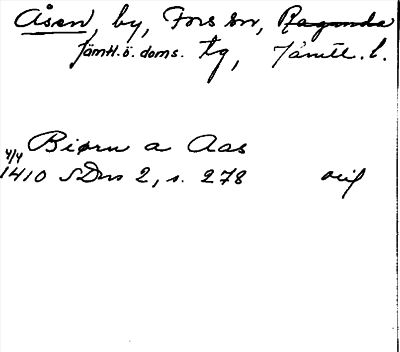 Åsen, by, Fors sn, Ragunda
Jämtl.ö. doms. tg, Jämtl. l.
Biørn a Aas
4/4
1410 SDns 2, s. 278 orig